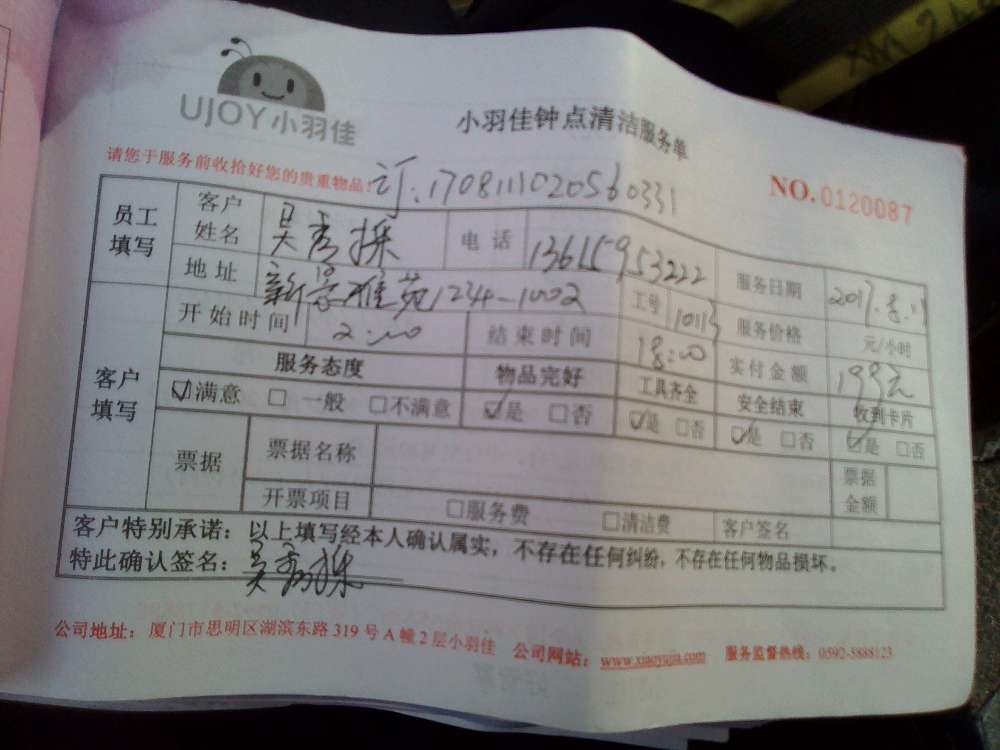 UJOY小羽佳
小羽佳钟点清洁服务单
请您于服务前收拾好您的贵重物品！
订.1708111020560331
NO.0120087
员工填写 客户姓名 吴秀探 电话 13615953222 服务日期 2017.8.11
地址 新景雅苑1234-1002 工号 10113 服务价格 元/小时
客户填写 开始时间 2:00 结束时间 18:00 实付金额 199元
服务态度 物品完好 工具齐全 安全结束 收到卡片
☑满意 □一般 □不满意 ☑是 □否 ☑是 □否 ☑是 □否 ☑是 □否
票据 票据名称 票据金额
开票项目 □服务费 □清洁费 客户签名
客户特别承诺：以上填写经本人确认属实，不存在任何纠纷，不存在任何物品损坏。
特此确认签名：吴秀探
公司地址：厦门市思明区湖滨东路319号A幢2层小羽佳 公司网站：www.xiaoyujia.com 服务监督热线：0592-5888123